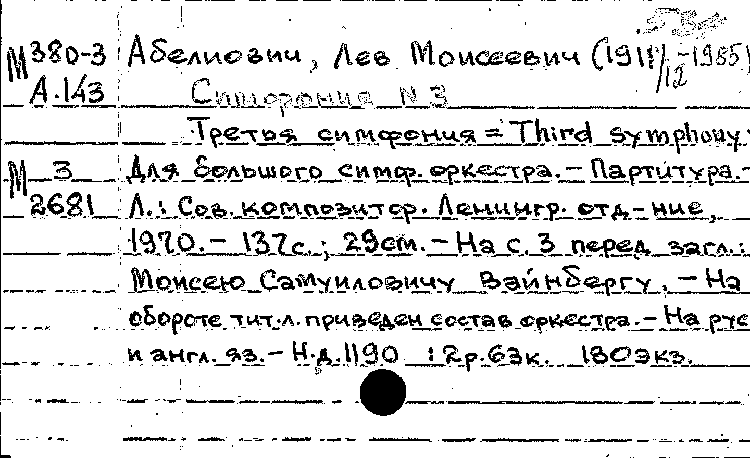 М 380-3 Абелиович, Лев Моисеевич (1911/12-1985)
А.143 Симфония N 3
Третья симфония = Third symphony:
М 3 Для большого симф. оркестра. - Партитура. -
2681 Л.: Сов. композитор. Ленингр. отд-ние,
1970. - 137с.; 29см. - На с. 3 перед загл.:
Моисею Самуиловичу Вайнбергу. - На
обороте тит.л. приведен состав оркестра. - На рус
и англ. яз. - Н.д. 1190 : 2р.63к. 180экз.